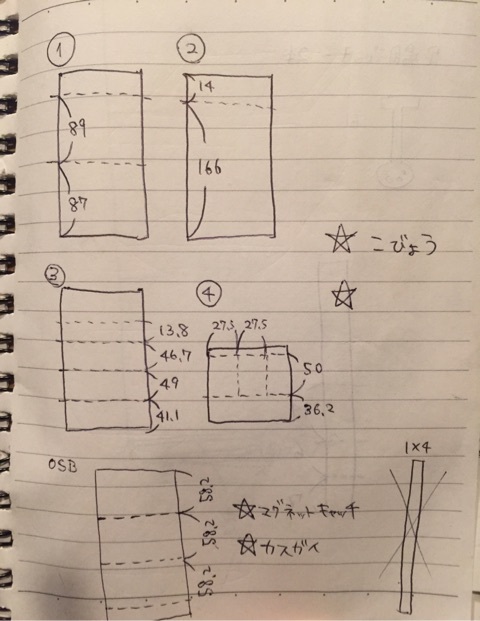 ① ②
14
89
166
87
☆ こびょう
☆
③ ④
27.5 27.5
13.8
46.7
50
49
36.2
41.1
1×4
OSB
58.2
☆ マグネットキャッチ
58.2
☆ カスガイ
58.2